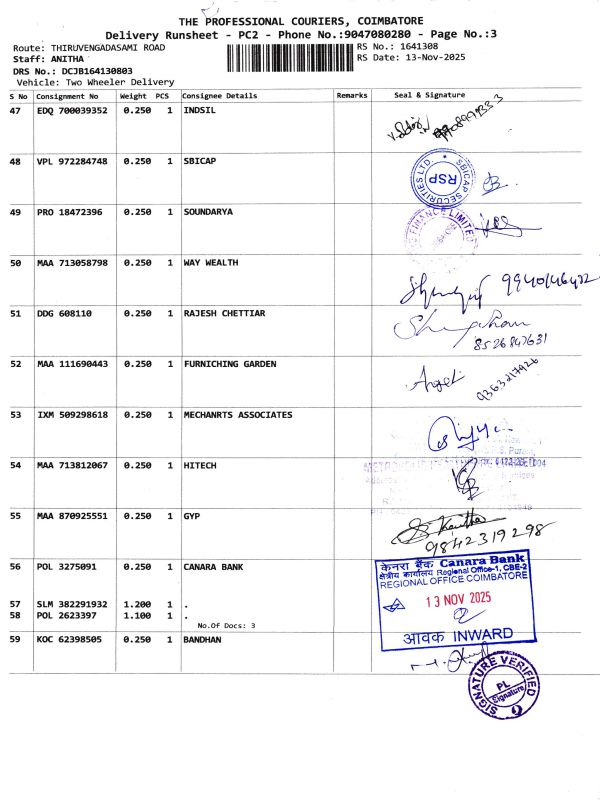 THE PROFESSIONAL COURIERS, COIMBATORE
Delivery Runsheet - PC2 - Phone No.:9047080280 - Page No.:3
Route: THIRUVENGADASAMI ROAD
RS No.: 1641308
Staff: ANITHA
RS Date: 13-Nov-2025
DRS No.: DCJB164130803
Vehicle: Two Wheeler Delivery
S No Consignment No Weight PCS Consignee Details Remarks Seal & Signature
47 EDQ 700039352 0.250 1 INDSIL
48 VPL 972284748 0.250 1 SBICAP
SBICAP SECURITIES LTD.
RSP
49 PRO 18472396 0.250 1 SOUNDARYA
FINANCE LIMITED
50 MAA 713058798 0.250 1 WAY WEALTH
9940146472
51 DDG 608110 0.250 1 RAJESH CHETTIAR
8526847631
52 MAA 111690443 0.250 1 FURNICHING GARDEN
Angel
9363217926
53 IXM 509298618 0.250 1 MECHANRTS ASSOCIATES
54 MAA 713812067 0.250 1 HITECH
55 MAA 870925551 0.250 1 GYP
S. Kavitha
9842319298
56 POL 3275091 0.250 1 CANARA BANK
केनरा बैंक Canara Bank
क्षेत्रीय कार्यालय Regional Office-1, CBE-2
REGIONAL OFFICE COIMBATORE
13 NOV 2025
आवक INWARD
57 SLM 382291932 1.200 1 .
58 POL 2623397 1.100 1 .
No.Of Docs: 3
59 KOC 62398505 0.250 1 BANDHAN
SIGNATURE VERIFIED
PL
Signature